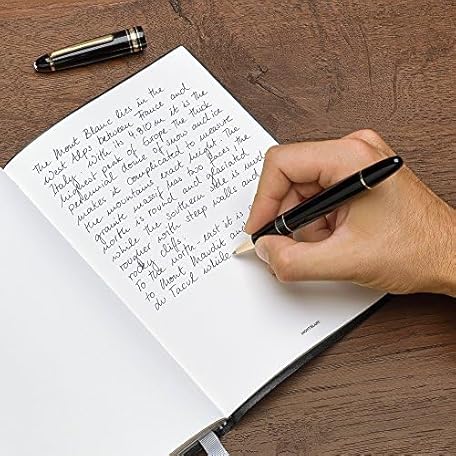 The Mont Blanc lies in the
West Alps between France and
Italy. With its 4'810 m it is the
highest peak of Europe. The thick
perennial dome of snow and ice
makes it complicated to measure
the mountains exact height. The
granite massif has two faces, the
north is round and glaciated
while the southern side is much
rougher with steep walls and
rocky cliffs.
To the north-east it is
to Mont Maudit and
du Tacul while
MONTBLANC